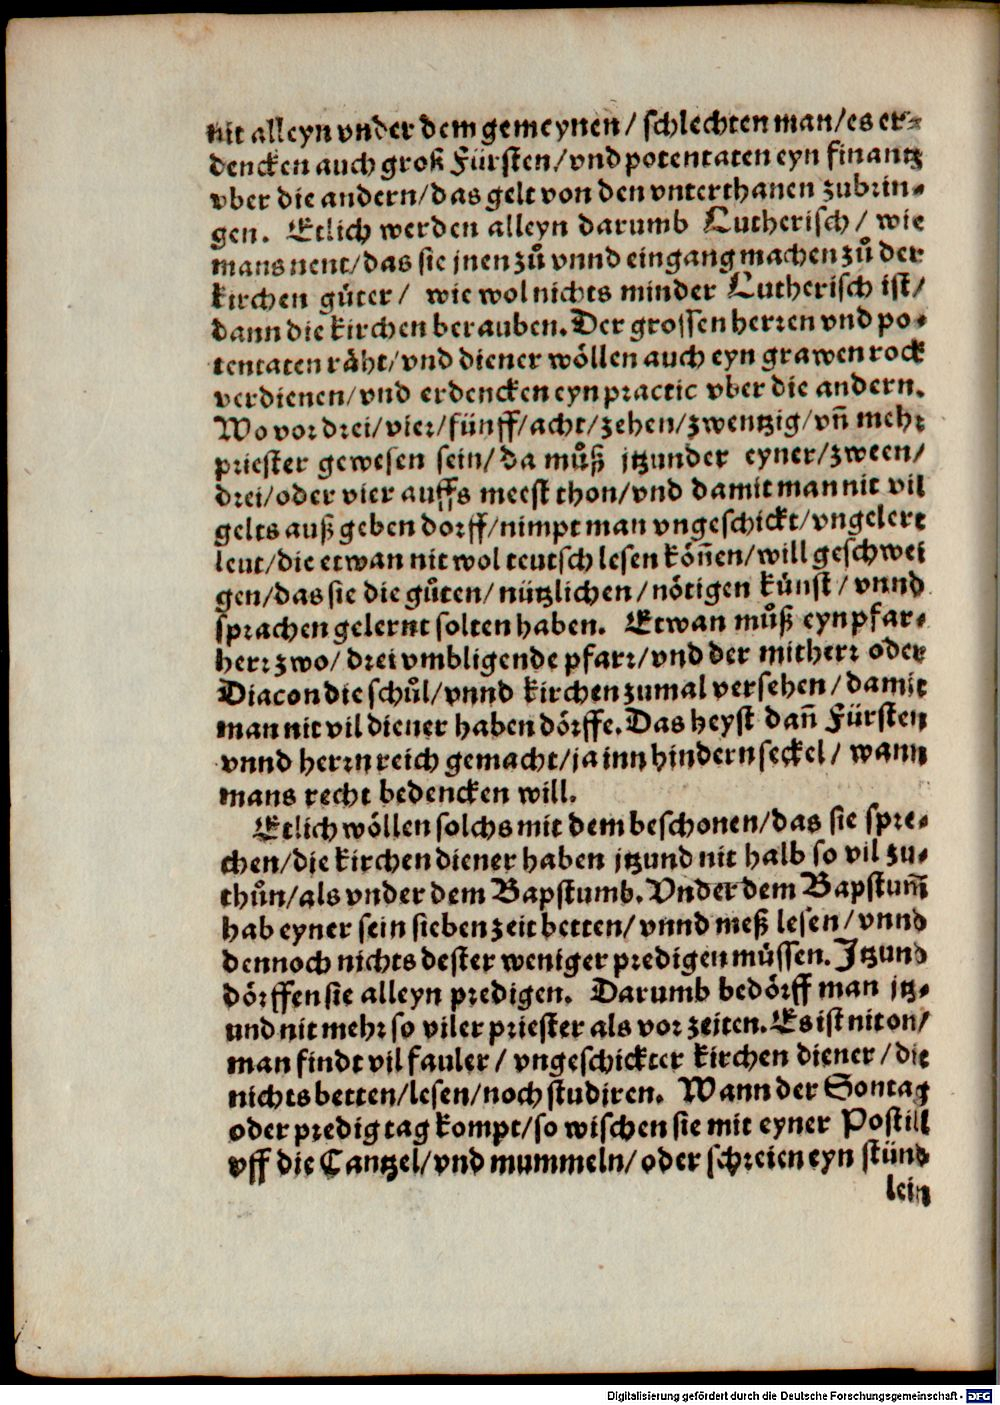 nit alleyn vnder dem gemeynen/ schlechten man/es er⸗
dencken auch groß Fürsten/vnd potentaten eyn finantz
vber die andern/das gelt von den vnterthanen zubrin⸗
gen. Etlich werden alleyn darumb Lutherisch/ wie
mans nent/das sie jnen zů vnnd eingang machen zů der
kirchen gůter/ wie wol nichts minder Lutherisch ist/
dann die kirchen berauben. Der grossen herren vnd po⸗
tentaten räht/vnd diener wöllen auch eyn grawen rock
verdienen/vnd erdencken eyn practic vber die andern.
Wo vor drei/vier/fünff/acht/zehen/zwentzig/vñ mehr
priester gewesen sein/da můß jtzunder eyner/zween/
drei/oder vier auffs meest thon/vnd damit man nit vil
gelts auß geben dorff/nimpt man vngeschickt/vngelert
leut/die etwan nit wol teutsch lesen köñen/will geschwei
gen/das sie die gůten/nützlichen/nötigen künst/vnnd
sprachen gelernt solten haben. Etwan můß eyn pfar⸗
herr zwo/drei vmbligende pfarr/vnd der mitherr oder
Diacon die schůl/vnnd kirchen zumal versehen/damit
man nit vil diener haben dörffe. Das heyst dañ Fürsten
vnnd herrn reich gemacht/ja inn hindern seckel/ wann
mans recht bedencken will.
Etlich wöllen solchs mit dem beschonen/das sie spre⸗
chen/die kirchen diener haben jtzund nit halb so vil zu⸗
thůn/als vnder dem Bapstumb. Vnder dem Bapstum̃
hab eyner sein sieben zeit betten/vnnd meß lesen/vnnd
dennoch nichts dester weniger predigen müssen. Jtzund
dörffen sie alleyn predigen. Darumb bedörff man jtz⸗
und nit mehr so viler priester als vor zeiten. Es ist nit on/
man findt vil fauler/ vngeschickter kirchen diener/die
nichts betten/lesen/noch studiren. Wann der Sontag
oder predig tag kompt/so wischen sie mit eyner Postill
vff die Cantzel/vnd mummeln/oder schreien eyn stünd
lein
Digitalisierung gefördert durch die Deutsche Forschungsgemeinschaft - DFG